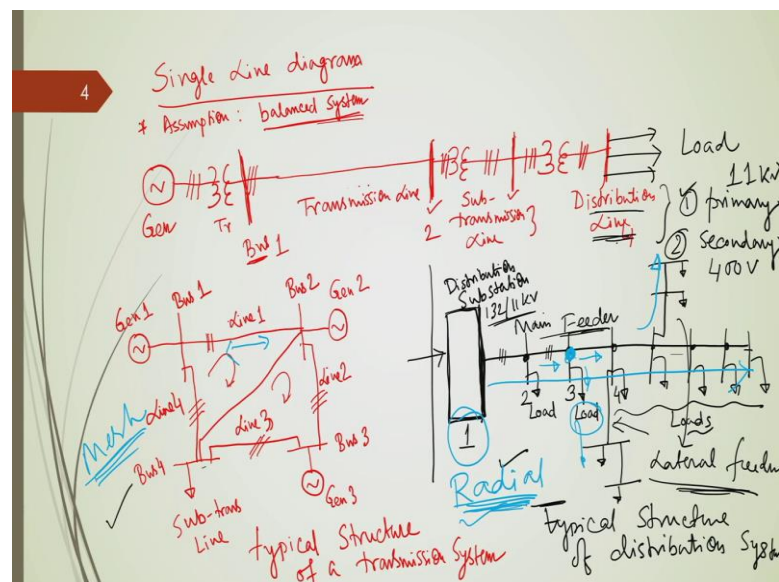 4
Single Line diagrama
* Assumption: balanced system
Gen
Tr
Bus 1
Transmission Line
2
Sub-
transmission
Line
Distribution
Line
Load
11 kV
1 primary
2 Secondary
400V
Gen 1
Bus 1
Line 1
Bus 2
Gen 2
Line 4
Line 2
Line 3
Mesh
Bus 4
Bus 3
Gen 3
Sub-trans
Line
typical Structure
of a transmission System
Distribution
Substation
132/11kV
Main Feeder
1
2
Load
3
Load
4
Loads
Lateral feeder
Radial
typical Structure
of distribution Syste